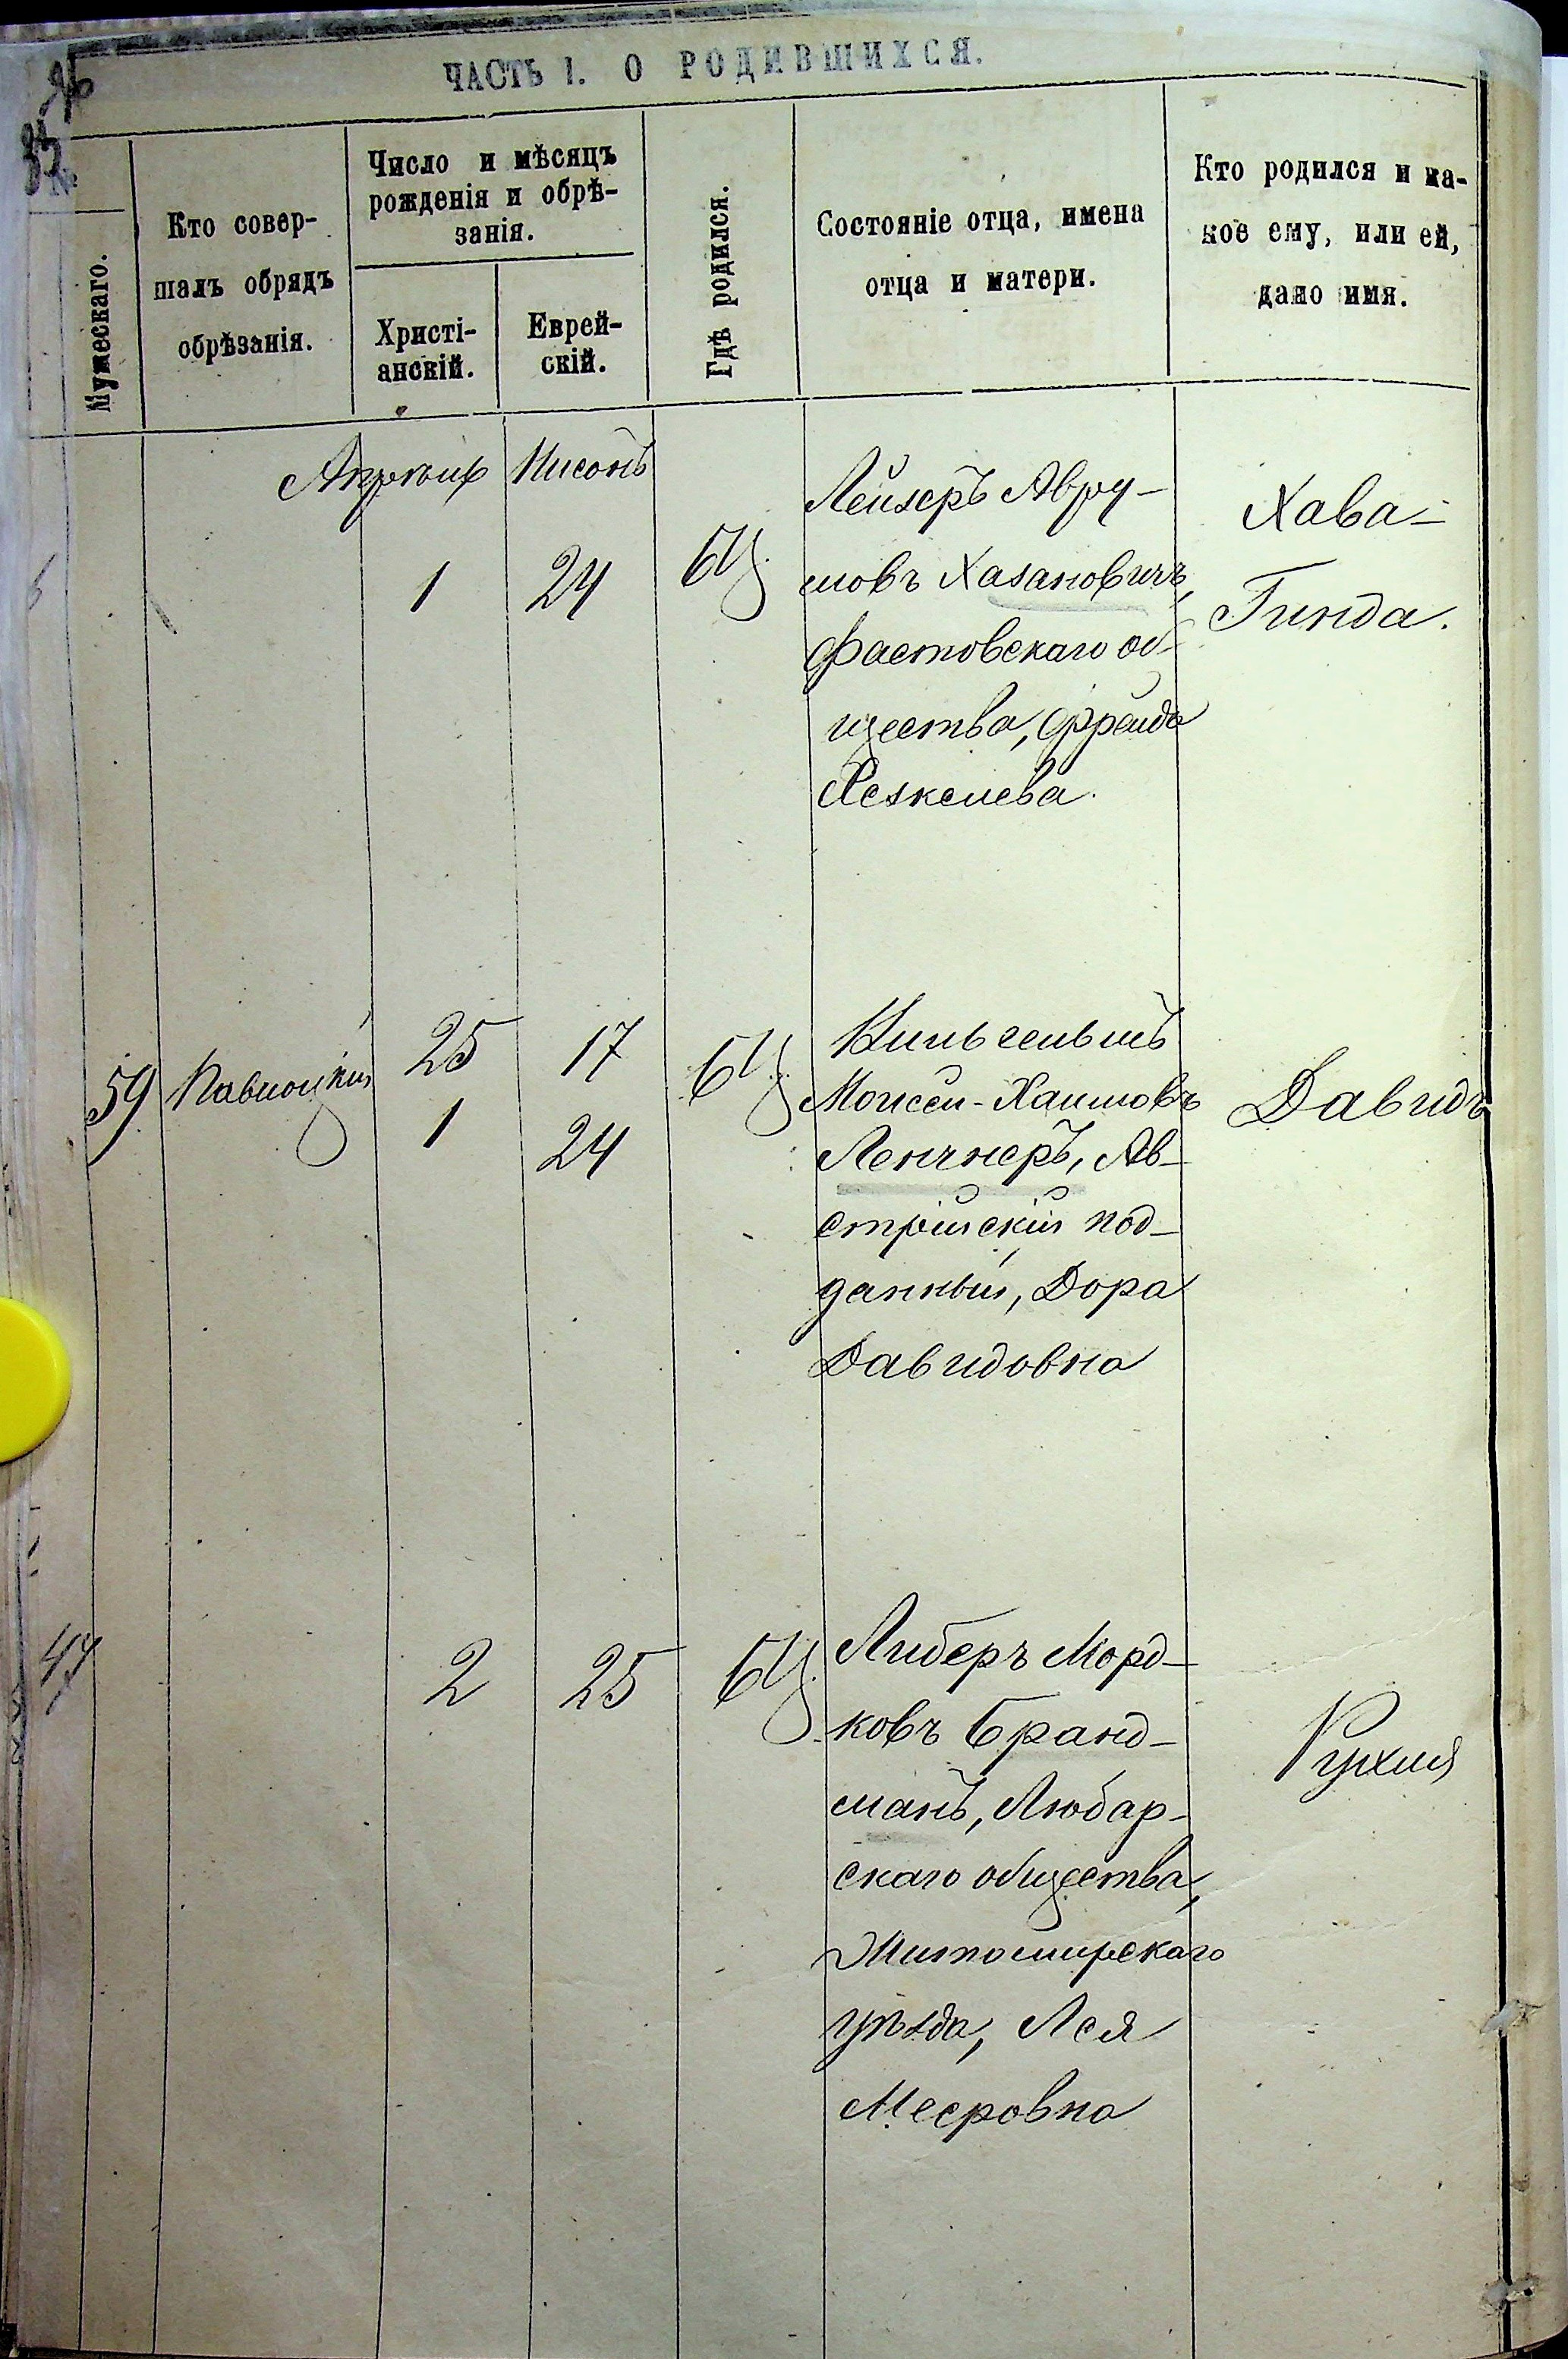 ЧАСТЬ I. О РОДИВШИХСЯ.
№
Мужескаго.
Кто совер-
шалъ обрядъ
обрѣзанія.
Число и мѣсяцъ
рожденія и обрѣ-
занія.
Христі-
анскій.
Еврей-
скій.
Гдѣ родился.
Состояніе отца, имена
отца и матери.
Кто родился и ка-
кое ему, или ей,
дано имя.
Апрѣль Нисонъ
1 24 БЦ.
Лейзеръ Авру-
мовъ Хазановичъ,
Фастовскаго об-
щества, Фрейда
Хезкелева.
Хава-
Гинда.
59 25 17 БЦ.
1 24
Вильгельмъ
Моисей-Хаимовъ
Ленчнеръ, Ав-
стрійскій под-
данный, Дора
Давидовна
Давидъ
47 2 25 БЦ.
Либеръ Морд-
ковъ Бранд-
манъ, Любар-
скаго общества,
Житомирскаго
уѣзда, Лея
Меeровна
Рухля